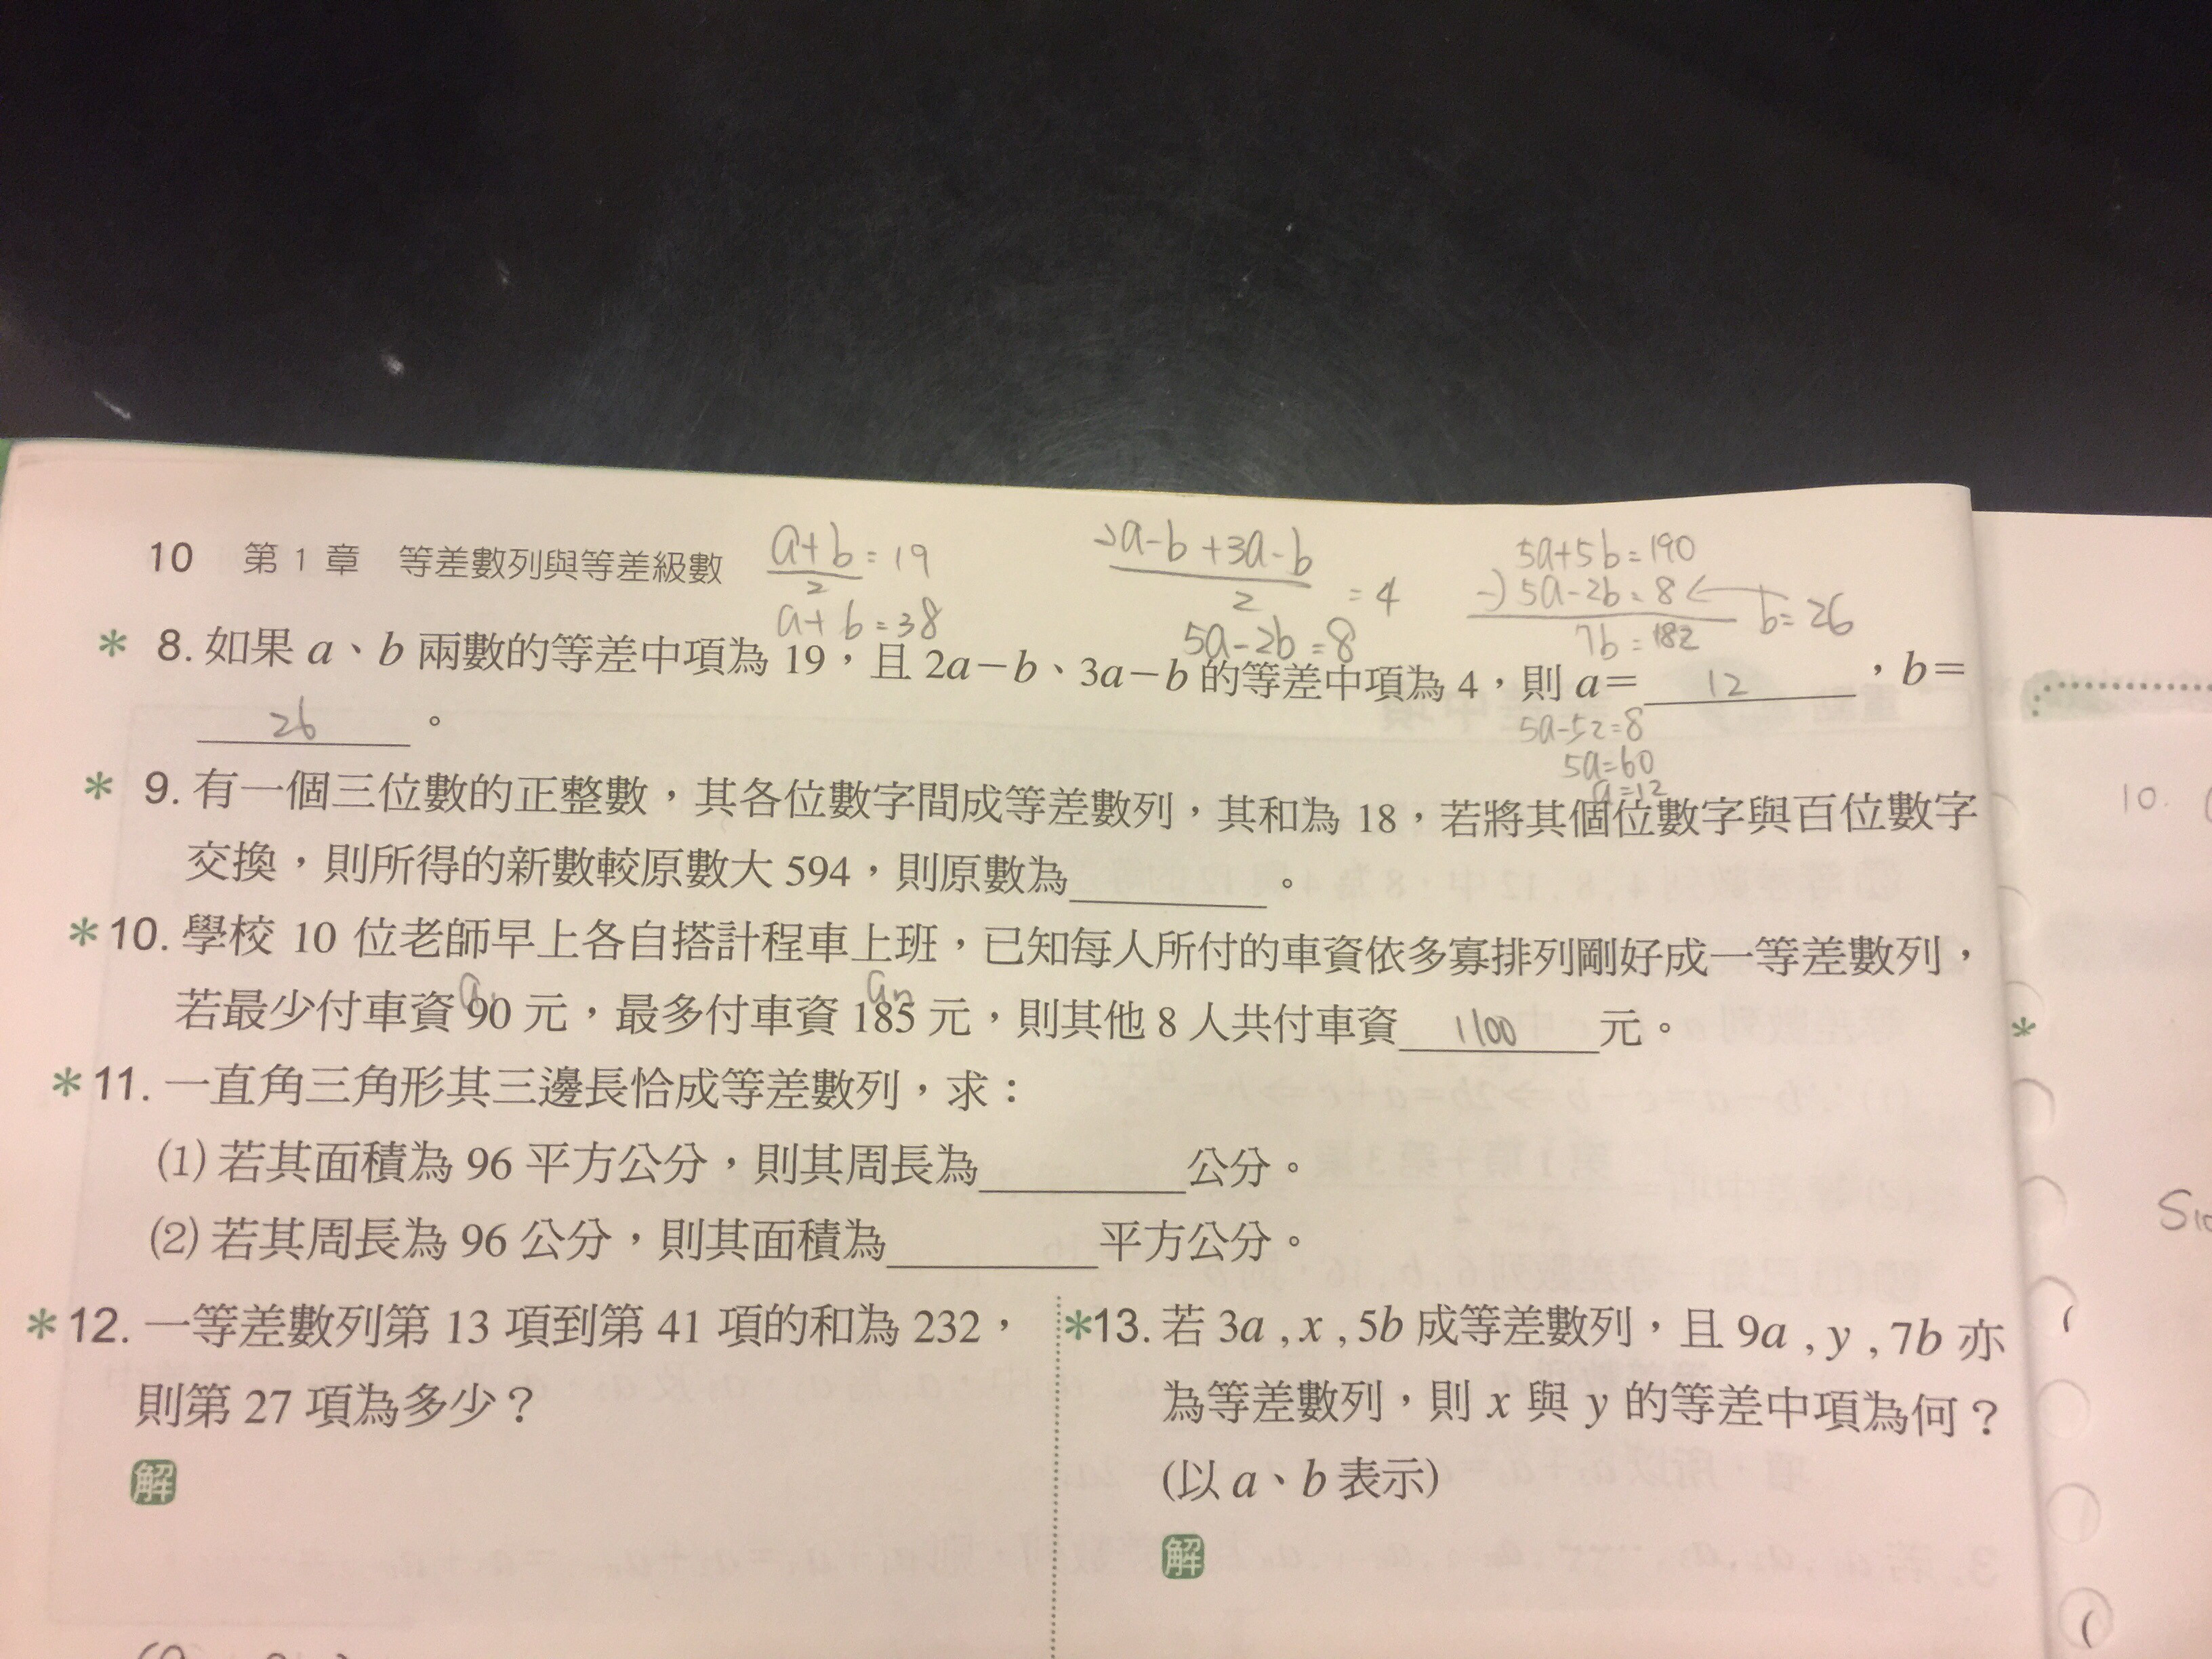 10 第 1 章 等差數列與等差級數
a+b/2 = 19
a+b=38
2a-b+3a-b/2 = 4
5a-2b=8
5a+5b=190
-) 5a-2b=8
7b=182
b=26
* 8. 如果 a、b 兩數的等差中項為 19，且 2a－b、3a－b 的等差中項為 4，則 a＝ 12 ，b＝
26 。
5a-52=8
5a=60
a=12
* 9. 有一個三位數的正整數，其各位數字間成等差數列，其和為 18，若將其個位數字與百位數字
交換，則所得的新數較原數大 594，則原數為 。
10.
* 10. 學校 10 位老師早上各自搭計程車上班，已知每人所付的車資依多寡排列剛好成一等差數列，
a₁ aₙ
若最少付車資 90 元，最多付車資 185 元，則其他 8 人共付車資 1100 元。
*
* 11. 一直角三角形其三邊長恰成等差數列，求：
(1) 若其面積為 96 平方公分，則其周長為 公分。
(2) 若其周長為 96 公分，則其面積為 平方公分。
* 12. 一等差數列第 13 項到第 41 項的和為 232，
則第 27 項為多少？
解
* 13. 若 3a , x , 5b 成等差數列，且 9a , y , 7b 亦
為等差數列，則 x 與 y 的等差中項為何？
(以 a、b 表示)
解